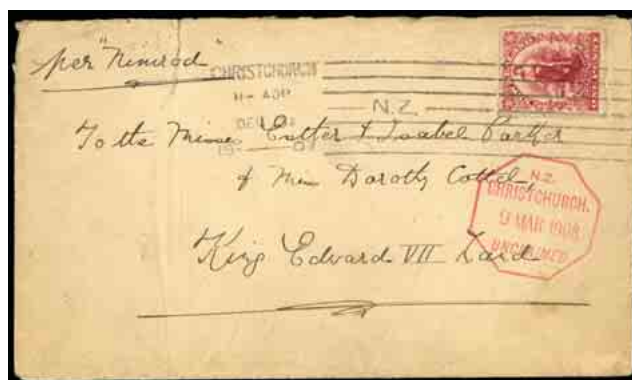 per "Nimrod"
CHRISTCHURCH
N.Z.
DE
19 07
To the Misses Esther & Isabel Parker
& Miss Dorothy Cottel,
King Edward VII Land
N.Z.
CHRISTCHURCH.
9 MAR 1908
UNCLAIMED